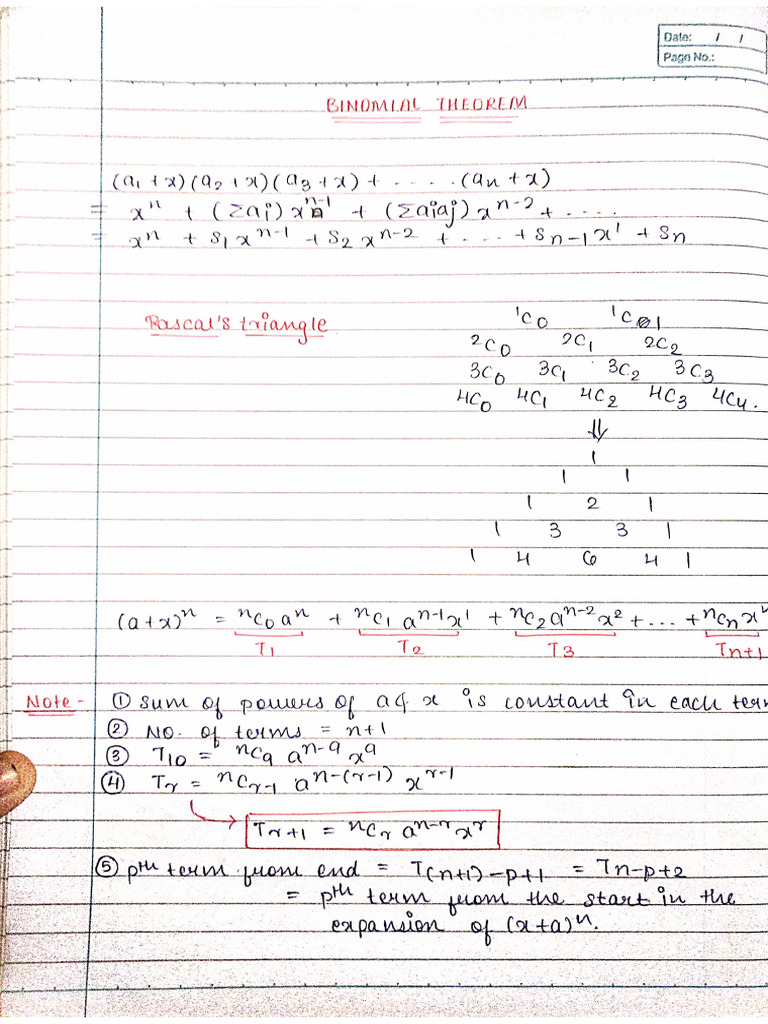 Date: / /
Page No.:
BINOMIAL THEOREM
(a₁ + x)(a₂ + x)(a₃ + x) + - . . . . (aₙ + x)
= xⁿ + (Σai) xⁿ⁻¹ + (Σaiaj) xⁿ⁻² + . . . .
= xⁿ + S₁ xⁿ⁻¹ + S₂ xⁿ⁻² + . . . + Sₙ₋₁x¹ + Sₙ
Pascal's triangle
¹C₀ ¹C₁
²C₀ 2C₁ 2C₂
3C₀ 3C₁ 3C₂ 3C₃
4C₀ 4C₁ 4C₂ 4C₃ 4C₄.
⇓
1
1 1
1 2 1
1 3 3 1
1 4 6 4 1
(a+x)ⁿ = ⁿC₀aⁿ + ⁿC₁ aⁿ⁻¹x¹ + ⁿC₂aⁿ⁻²x² + ... + ⁿCₙxⁿ
T₁ T₂ T₃ Tₙ₊₁
Note - ① Sum of powers of a & x is constant in each term
② NO. of terms = n+1
③ T₁₀ = ⁿC₉ aⁿ⁻⁹ x⁹
④ Tᵣ = ⁿCᵣ₋₁ aⁿ⁻⁽ʳ⁻¹⁾ xʳ⁻¹
→ Tᵣ₊₁ = ⁿCᵣ aⁿ⁻ʳxʳ
⑤ pᵗʰ term from end = T₍ₙ₊₁₎₋ₚ₊₁ = Tₙ₋ₚ₊₂
= pᵗʰ term from the start in the
expansion of (x+a)ⁿ.